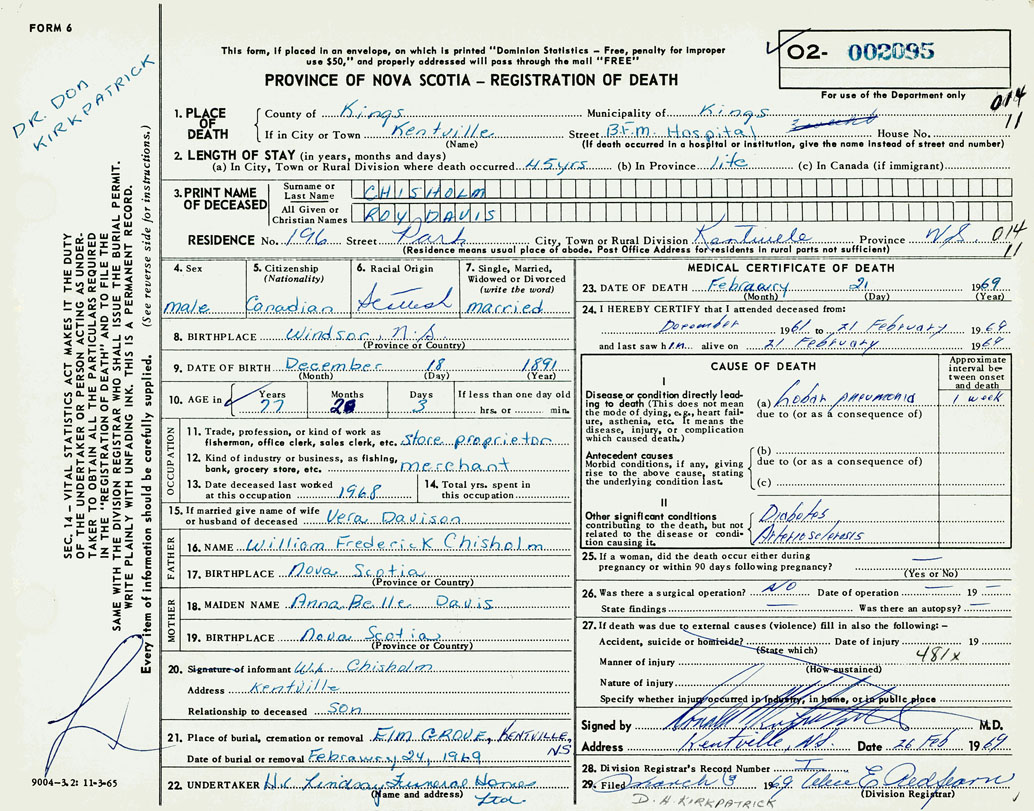 FORM 6
DR. DON
KIRKPATRICK
This form, if placed in an envelope, on which is printed "Dominion Statistics – Free, penalty for improper
use $50," and properly addressed will pass through the mail "FREE"
PROVINCE OF NOVA SCOTIA – REGISTRATION OF DEATH
02- 002095
For use of the Department only
014
11
1. PLACE OF DEATH
County of Kings Municipality of Kings
If in City or Town Kentville Street B.F.M. Hospital House No.
(Name) (If death occurred in a hospital or institution, give the name instead of street and number)
2. LENGTH OF STAY (in years, months and days)
(a) In City, Town or Rural Division where death occurred 45 yrs (b) In Province life (c) In Canada (if immigrant)
3. PRINT NAME OF DECEASED
Surname or Last Name CHISHOLM
All Given or Christian Names ROY DAVIS
RESIDENCE No. 196 Street Park City, Town or Rural Division Kentville Province N.S. 014
11
(Residence means usual place of abode. Post Office Address for residents in rural parts not sufficient)
4. Sex
male
5. Citizenship
(Nationality)
Canadian
6. Racial Origin
Scottish
7. Single, Married,
Widowed or Divorced
(write the word)
married
8. BIRTHPLACE Windsor, N.S.
(Province or Country)
9. DATE OF BIRTH December 18 1891
(Month) (Day) (Year)
10. AGE in Years Months Days If less than one day old
77 2 3 hrs. or min.
OCCUPATION
11. Trade, profession, or kind of work as
fisherman, office clerk, sales clerk, etc. store proprietor
12. Kind of industry or business, as fishing,
bank, grocery store, etc. merchant
13. Date deceased last worked
at this occupation 1968
14. Total yrs. spent in
this occupation
15. If married give name of wife
or husband of deceased Vera Davison
FATHER
16. NAME William Frederick Chisholm
17. BIRTHPLACE Nova Scotia
(Province or Country)
MOTHER
18. MAIDEN NAME Anna Belle Davis
19. BIRTHPLACE Nova Scotia
(Province or Country)
20. Signature of informant W.L. Chisholm
Address Kentville
Relationship to deceased son
21. Place of burial, cremation or removal ELM GROVE, KENTVILLE,
NS
Date of burial or removal February 24, 1969
22. UNDERTAKER H.C. Lindsay Funeral Homes
(Name and address) Ltd
MEDICAL CERTIFICATE OF DEATH
23. DATE OF DEATH February 21 1969
(Month) (Day) (Year)
24. I HEREBY CERTIFY that I attended deceased from:
December 1961 to 21 February 1969
and last saw him alive on 21 February 1969
CAUSE OF DEATH
Approximate
interval be-
tween onset
and death
I
Disease or condition directly lead-
ing to death (This does not mean
the mode of dying, e.g., heart fail-
ure, asthenia, etc. It means the
disease, injury, or complication
which caused death.)
(a) Lobar pneumonia 1 week
due to (or as a consequence of)
Antecedent causes
Morbid conditions, if any, giving
rise to the above cause, stating
the underlying condition last.
(b)
due to (or as a consequence of)
(c)
II
Other significant conditions
contributing to the death, but not
related to the disease or condi-
tion causing it.
Diabetes
Arteriosclerosis
25. If a woman, did the death occur either during
pregnancy or within 90 days following pregnancy? —
(Yes or No)
26. Was there a surgical operation? NO Date of operation — 19 —
State findings — Was there an autopsy? —
27. If death was due to external causes (violence) fill in also the following:–
Accident, suicide or homicide? Date of injury 19
(State which) 481x
Manner of injury
(How sustained)
Nature of injury
Specify whether injury occurred in industry, in home, or in public place
Signed by M.D.
Address Kentville, N.S. Date 26 Feb 1969
28. Division Registrar's Record Number
29. Filed March 1969
(Division Registrar)
D.H. KIRKPATRICK
SEC. 14 – VITAL STATISTICS ACT MAKES IT THE DUTY
OF THE UNDERTAKER OR PERSON ACTING AS UNDER-
TAKER TO OBTAIN ALL THE PARTICULARS REQUIRED
IN THE "REGISTRATION OF DEATH" AND TO FILE THE
SAME WITH THE DIVISION REGISTRAR WHO SHALL ISSUE THE BURIAL PERMIT.
WRITE PLAINLY WITH UNFADING INK. THIS IS A PERMANENT RECORD.
Every item of information should be carefully supplied. (See reverse side for instructions.)
9004–3.2: 11-3-65